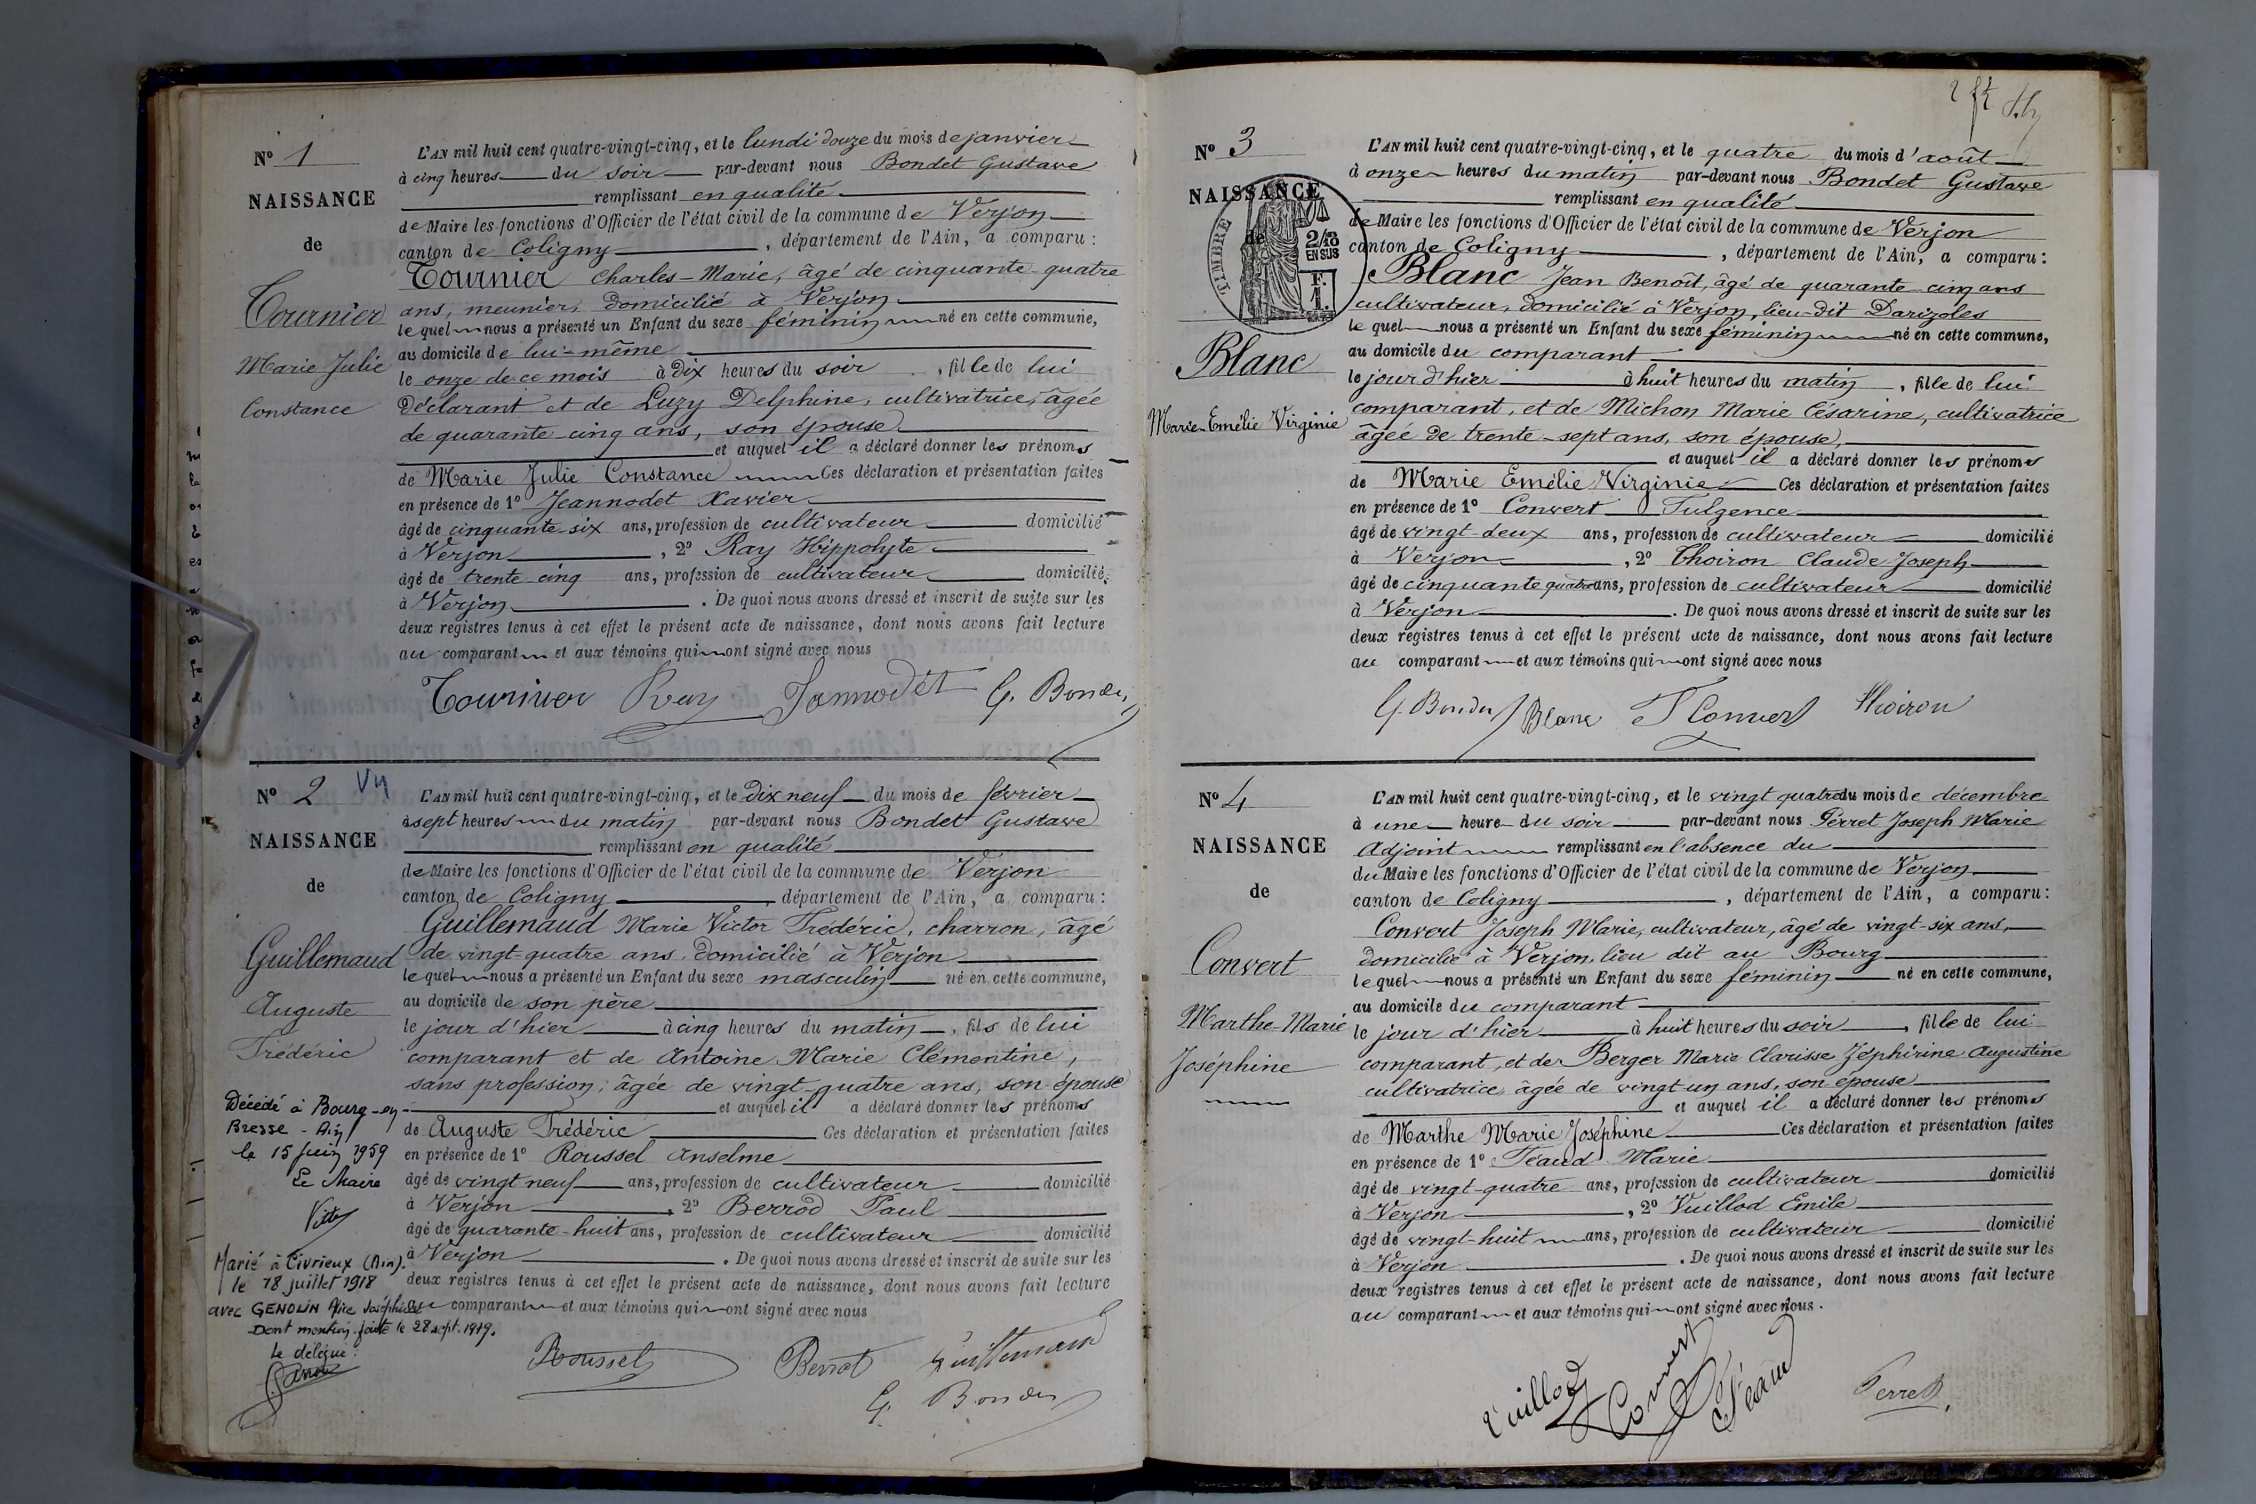 Nº 1
NAISSANCE
de
Tournier
Marie Julie
Constance
L'AN mil huit cent quatre-vingt-cinq, et le lundi douze du mois de janvier
à cinq heures du soir par-devant nous Bondet Gustave
remplissant en qualité
de Maire les fonctions d'Officier de l'état civil de la commune de Verjon
canton de Coligny, département de l'Ain, a comparu :
Tournier Charles-Marie, âgé de cinquante-quatre
ans, meunier, domicilié à Verjon
lequel nous a présenté un Enfant du sexe féminin né en cette commune,
au domicile de lui-même
le onze de ce mois à dix heures du soir, fille de lui
déclarant et de Luzy Delphine, cultivatrice, âgée
de quarante-cinq ans, son épouse
et auquel il a déclaré donner les prénoms
de Marie Julie Constance Ces déclaration et présentation faites
en présence de 1º Jeannodet Xavier
âgé de cinquante six ans, profession de cultivateur domicilié
à Verjon, 2º Ray Hippolyte
âgé de trente cinq ans, profession de cultivateur domicilié
à Verjon. De quoi nous avons dressé et inscrit de suite sur les
deux registres tenus à cet effet le présent acte de naissance, dont nous avons fait lecture
au comparant et aux témoins qui ont signé avec nous
Tournier Ray Jannodet G. Bondet
Nº 2
NAISSANCE
de
Guillemaud
Auguste
Frédéric
Décédé à Bourg-en-
Bresse - Ain
le 15 juin 1959
Le Maire
Marié à Civrieux (Ain).
le 18 juillet 1918
avec GENOLIN Mie Joséphine
Dont mention faite le 28 sept. 1919.
Le délégué :
L'AN mil huit cent quatre-vingt-cinq, et le dix neuf du mois de février
à sept heures du matin par-devant nous Bondet Gustave
remplissant en qualité
de Maire les fonctions d'Officier de l'état civil de la commune de Verjon
canton de Coligny, département de l'Ain, a comparu :
Guillemaud Marie Victor Frédéric, charron, âgé
de vingt-quatre ans, domicilié à Verjon
lequel nous a présenté un Enfant du sexe masculin né en cette commune,
au domicile de son père
le jour d'hier à cinq heures du matin, fils de lui
comparant et de Antoine Marie Clémentine,
sans profession, âgée de vingt-quatre ans, son épouse
et auquel il a déclaré donner les prénoms
de Auguste Frédéric Ces déclaration et présentation faites
en présence de 1º Roussel Anselme
âgé de vingt neuf ans, profession de cultivateur domicilié
à Verjon, 2º Berrod Paul
âgé de quarante-huit ans, profession de cultivateur domicilié
à Verjon. De quoi nous avons dressé et inscrit de suite sur les
deux registres tenus à cet effet le présent acte de naissance, dont nous avons fait lecture
au comparant et aux témoins qui ont signé avec nous
Roussel Berrot Guillemaud
G. Bondet
Nº 3
NAISSANCE
de
TIMBRE
2/10
EN SUS
F.
1.
Blanc
Marie-Emélie Virginie
L'AN mil huit cent quatre-vingt-cinq, et le quatre du mois d'août
à onze heures du matin par-devant nous Bondet Gustave
remplissant en qualité
de Maire les fonctions d'Officier de l'état civil de la commune de Verjon
canton de Coligny, département de l'Ain, a comparu :
Blanc Jean Benoît, âgé de quarante-cinq ans
cultivateur, domicilié à Verjon, lieu dit Darizoles
lequel nous a présenté un Enfant du sexe féminin né en cette commune,
au domicile du comparant
le jour d'hier à huit heures du matin, fille de lui
comparant, et de Michon Marie Césarine, cultivatrice
âgée de trente-sept ans, son épouse,
et auquel il a déclaré donner les prénoms
de Marie Emélie Virginie Ces déclaration et présentation faites
en présence de 1º Convert Fulgence
âgé de vingt-deux ans, profession de cultivateur domicilié
à Verjon, 2º Thoiron Claude-Joseph
âgé de cinquante quatre ans, profession de cultivateur domicilié
à Verjon. De quoi nous avons dressé et inscrit de suite sur les
deux registres tenus à cet effet le présent acte de naissance, dont nous avons fait lecture
au comparant et aux témoins qui ont signé avec nous
G. Bondet Blanc F Convert Thoiron
Nº 4
NAISSANCE
de
Convert
Marthe-Marie
Joséphine
L'AN mil huit cent quatre-vingt-cinq, et le vingt quatre du mois de décembre
à une heure du soir par-devant nous Perret Joseph Marie
Adjoint remplissant en l'absence du
du Maire les fonctions d'Officier de l'état civil de la commune de Verjon
canton de Coligny, département de l'Ain, a comparu :
Convert Joseph Marie, cultivateur, âgé de vingt-six ans,
domicilié à Verjon, lieu dit au Bourg
lequel nous a présenté un Enfant du sexe féminin né en cette commune,
au domicile du comparant
le jour d'hier à huit heures du soir, fille de lui
comparant, et de Berger Marie Clarisse Zéphirine Augustine
cultivatrice âgée de vingt un ans, son épouse
et auquel il a déclaré donner les prénoms
de Marthe Marie Joséphine Ces déclaration et présentation faites
en présence de 1º Féaud Marie
âgé de vingt-quatre ans, profession de cultivateur domicilié
à Verjon, 2º Vuillod Emile
âgé de vingt-huit ans, profession de cultivateur domicilié
à Verjon. De quoi nous avons dressé et inscrit de suite sur les
deux registres tenus à cet effet le présent acte de naissance, dont nous avons fait lecture
au comparant et aux témoins qui ont signé avec nous.
Vuillod Convert Féaud Perret